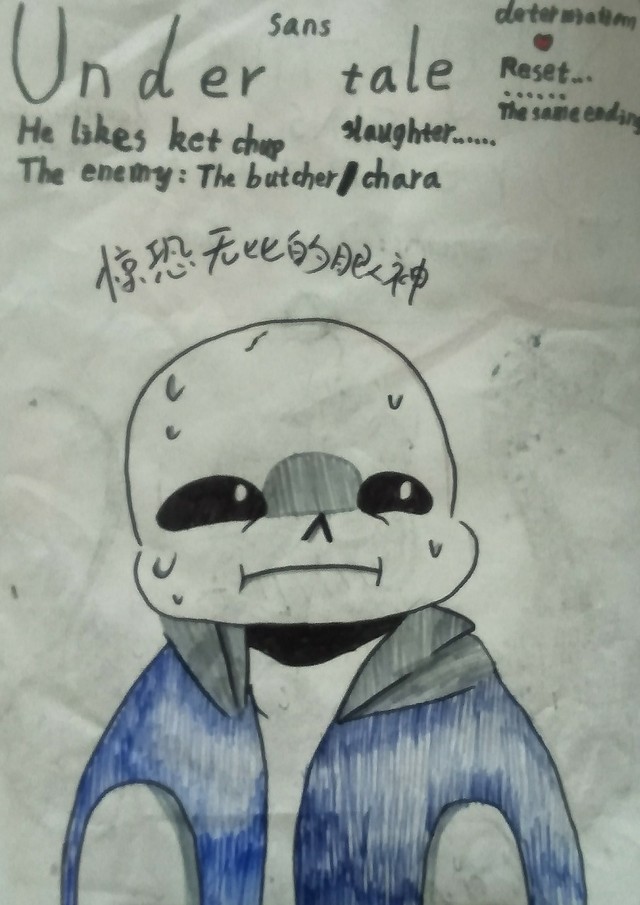 sans
Under tale
He likes ketchup
slaughter......
The enemy: The butcher/chara
determination
Reset...
......
The same ending
惊恐无比的眼神